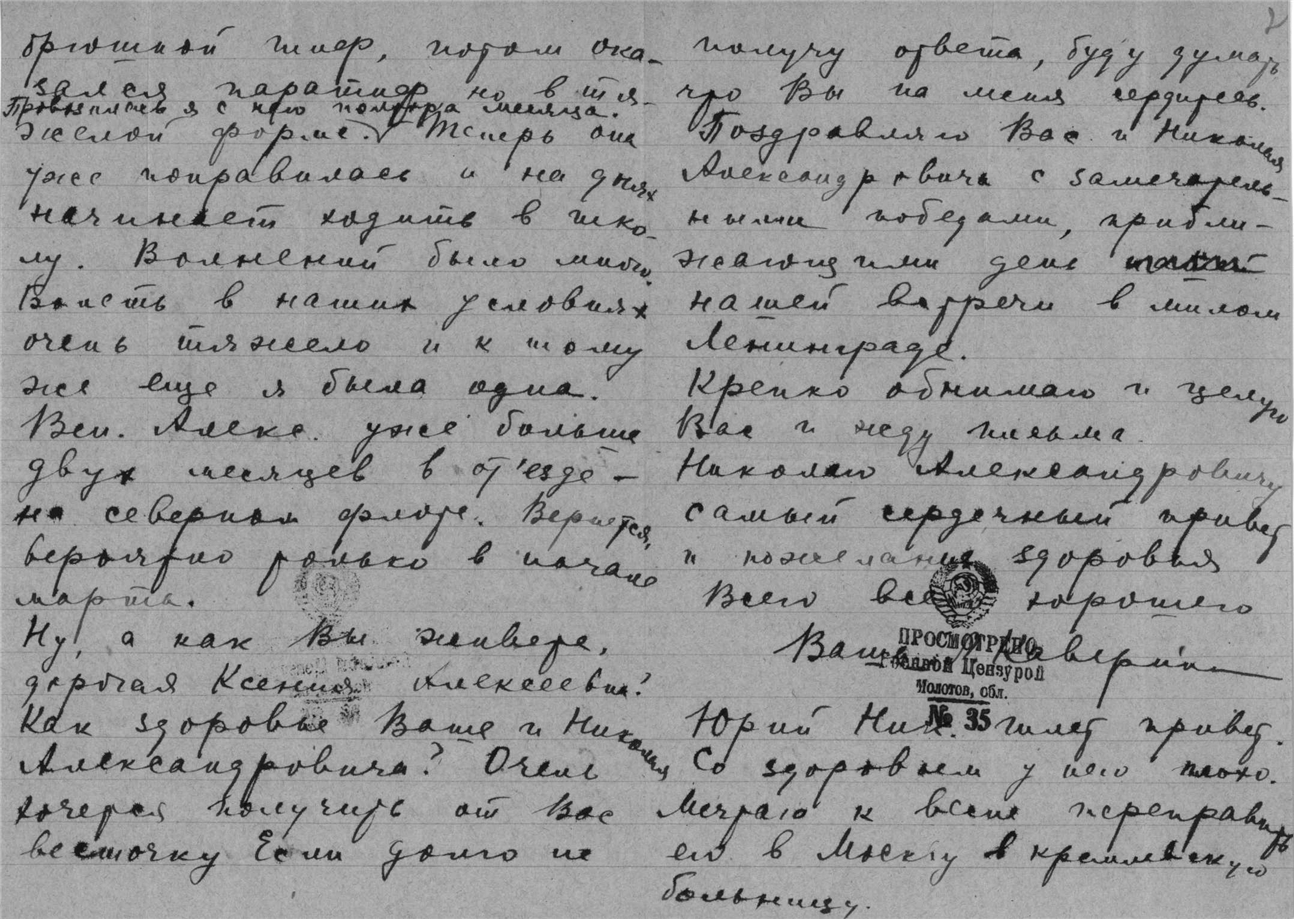 2
брюшной тиф, потом ока-
зался паратиф но в тя-
Провозилась я с него полтора месяца.
желой форме. Теперь она
уже поправилась и на днях
начинает ходить в шко-
лу. Волнений было много.
Болеть в наших условиях
очень тяжело и к тому
же еще я была одна.
Вен. Алекс. уже больше
двух месяцев в от'езде –
на северном флоте. Вернется,
вероятно только в начале
марта.
Ну, а как Вы живете,
дорогая Ксения Алексеевна?
Как здоровье Ваше и Николая
Александровича? Очень
хочется получить от Вас
весточку Если долго не
получу ответа, буду думать
что Вы на меня сердитесь.
Поздравляю Вас и Николая
Александровича с замечатель-
ными победами, прибли-
жающими день
нашей встречи в милом
Ленинграде.
Крепко обнимаю и целую
Вас и жду письма.
Николаю Александровичу
самый сердечный привет
и пожелания здоровья
Всего всего хорошего
Ваша Каверина
ПРОСМОТРЕНО
Военной Цензурой
Молотов, обл.
№ 35
Юрий Ник. шлет привет.
Со здоровьем у него плохо.
Мечтаю к весне переправить
его в Москву в кремлевскую
больницу.